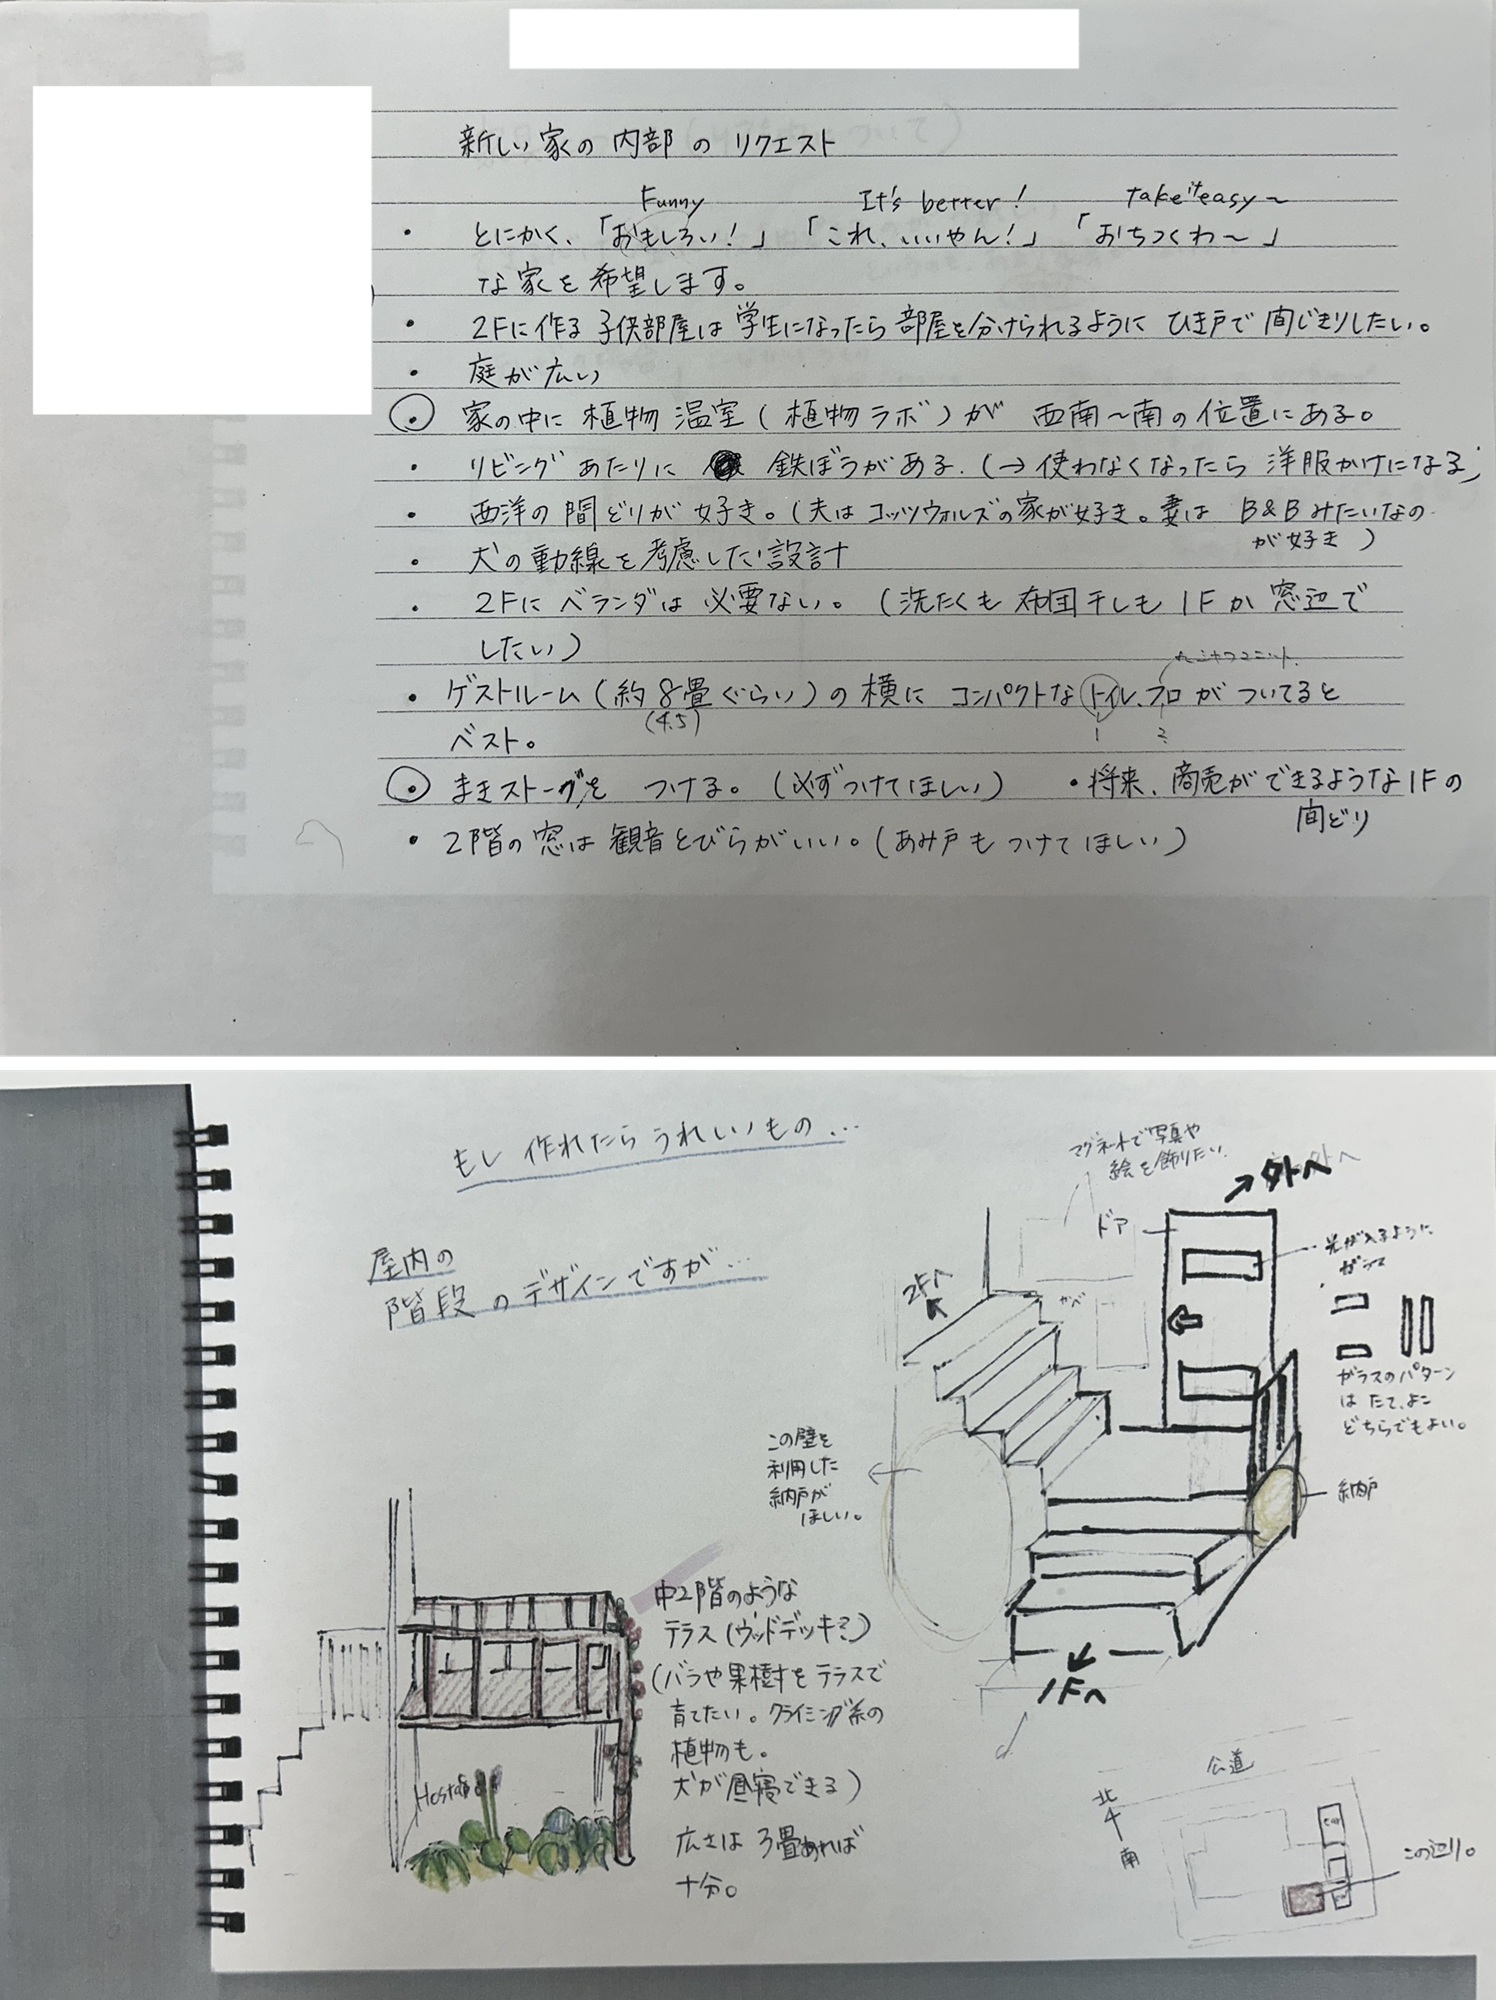 新しい家の内部のリクエスト
Funny It's better! take it easy~
・とにかく、「おもしろい!」「これ、いいやん!」「おちつくわ~」
な家を希望します。
・2Fに作る子供部屋は学生になったら部屋を分けられるようにひき戸で間じきりしたい。
・庭が広い
・家の中に植物温室(植物ラボ)が西南~南の位置にある。
・リビングあたりに鉄ぼうがある.(→使わなくなったら洋服かけになる)
・西洋の間どりが好き。(夫はコッツウォルズの家が好き。妻はB&Bみたいなの
が好き)
・犬の動線を考慮した設計
・2Fにベランダは必要ない。(洗たくも布団干しも1Fか窓辺で
したい)
・ゲストルーム(約8畳ぐらい)の横にコンパクトなトイレ、フロがついてると
(4.5) 1 2
ベスト。
・まきストーヴをつける。(必ずつけてほしい) ・将来、商売ができるような1Fの
間どり
・2階の窓は観音とびらがいい。(あみ戸もつけてほしい)
もし作れたらうれしいもの…
屋内の
階段のデザインですが…
マグネットで写真や
絵を飾りたい
外へ
ドア
光が入るように
ガラス
2Fへ
かべ
ガラスのパターン
はたて、よこ
どちらでもよい。
この壁を
利用した
納戸が
ほしい。
納戸
1Fへ
中2階のような
テラス(ウッドデッキ?)
(バラや果樹をテラスで
育てたい。クライミング系の
植物も。
犬が昼寝できる)
広さは3畳あれば
十分。
Hosta
公道
北
南
この辺り。